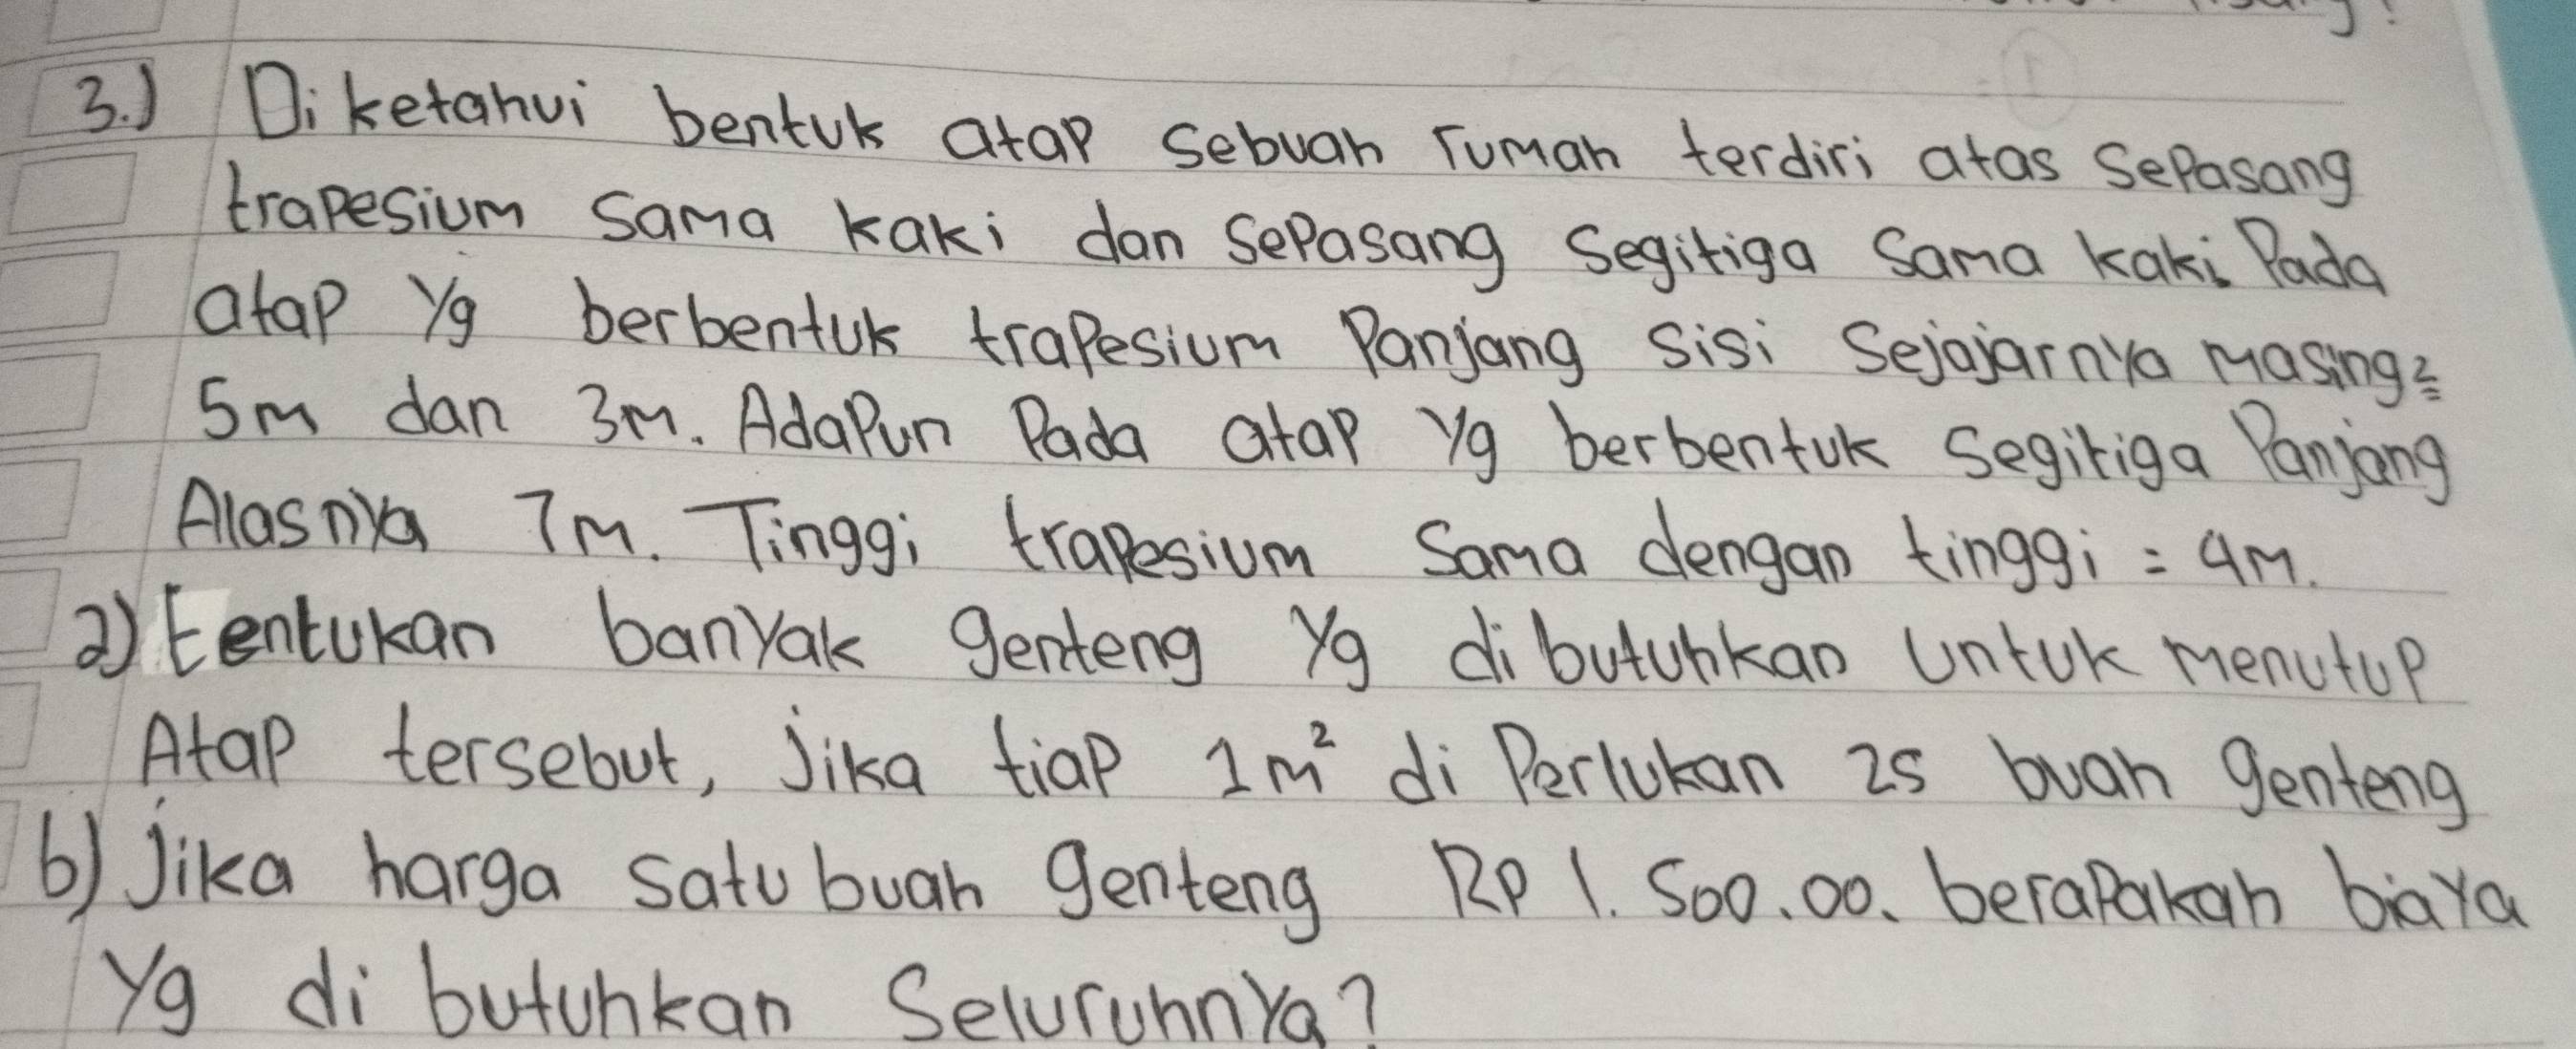 3.) Diketahui bentuk atap sebuah rumah terdiri atas sepasang
trapesium sama kaki dan sepasang segitiga sama kaki. Pada
atap yg berbentuk trapesium panjang sisi sejajarnya masing2
5m dan 3m. Adapun pada atap yg berbentuk segitiga panjang
Alasnya 7m. Tinggi trapesium sama dengan tinggi = 4m.
a) tentukan banyak genteng yg di butuhkan untuk menutup
Atap tersebut, jika tiap 1m² di perlukan 25 buah genteng
b) Jika harga satu buah genteng Rp 1.500.00. berapakah biaya
yg di butuhkan seluruhnya?